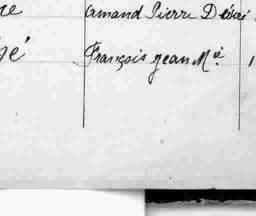 Amand Pierre Désiré
François Jean M.ie